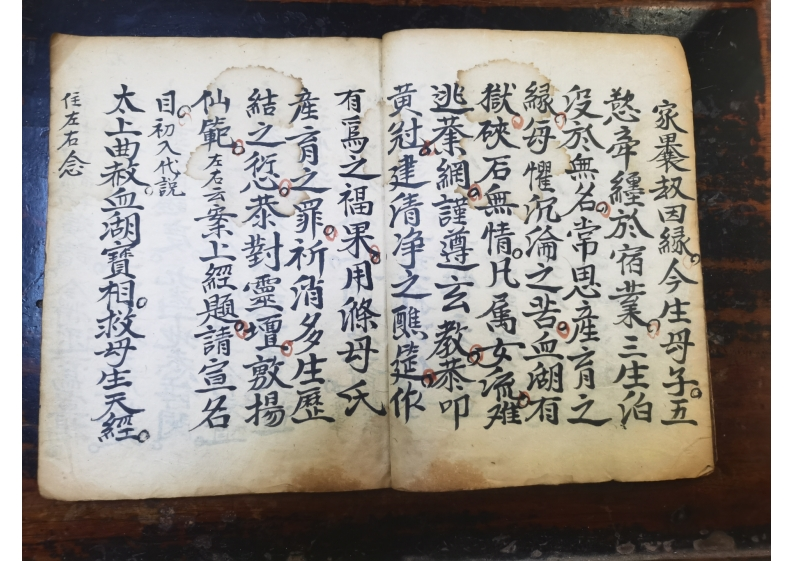 家曩刼因緣。今生母子。五
慾牽纏於宿業。三生泊
没於無名。常思產育之
緣。母懼沉淪之苦。血湖有
獄。硤石無情。凡属女流。难
逃業網。謹遵玄教。恭叩
黄冠。建清净之醮筵。作
有爲之福果。用滌母氏
產育之罪。祈消多生歷
結之愆。恭對靈壇。敷揚
仙範。左右云案上經題。請宣名
目。初入代説
太上曲赦血湖寶相。救母生天經。
住左右念